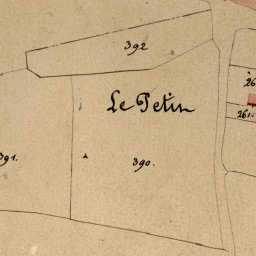 392
Le Petin
26
261.
391.
390.